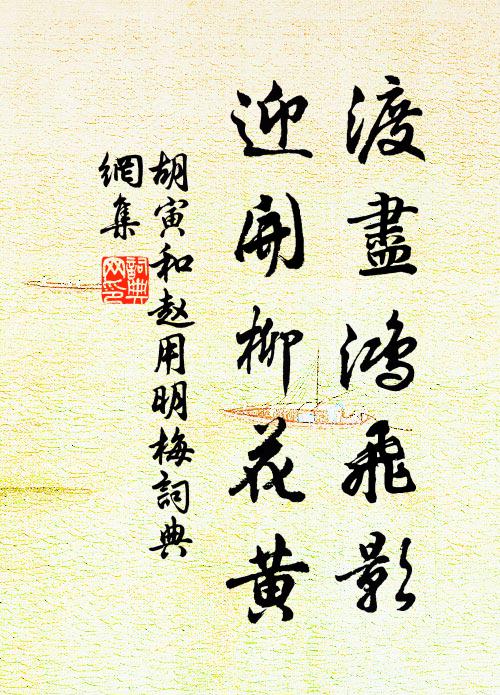 渡盡鴻飛影
迎開柳花黄
胡寅和赵用明梅詞典
網集
詞典
网印